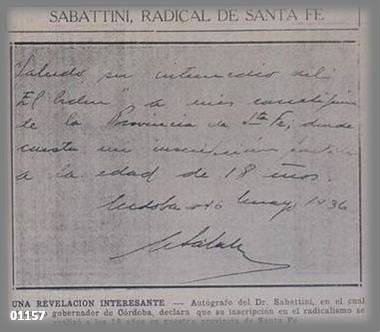 SABATTINI, RADICAL DE SANTA FE
Saludo por intermedio del
"El Orden" a mis
de la Provincia de Sta Fe, donde
consta mi
a la edad de 18 años.
Córdoba Mayo 1936
Sabattini
01157
UNA REVELACION INTERESANTE. — Autógrafo del Dr. Sabattini, en el cual
gobernador de Córdoba, declara que su inscripción en el radicalismo se
a los 18 años en nuestra provincia de Santa Fe